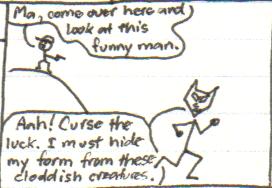 Ma, come over here and
look at this
funny man.
Anh! Curse the
luck. I must hide
my form from these
cloddish creatures.